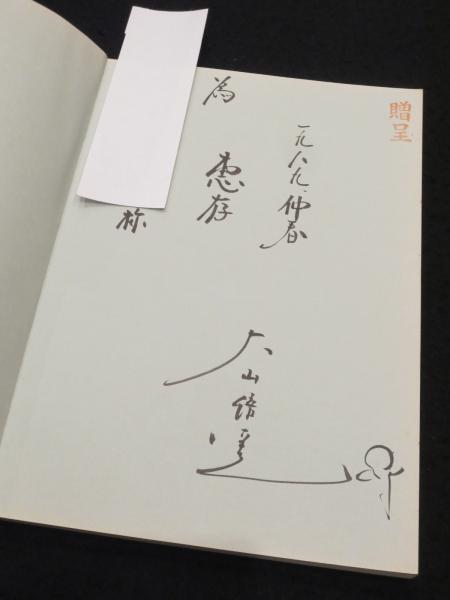 贈呈
一九八九、仲春
為
恵存
大山倍達